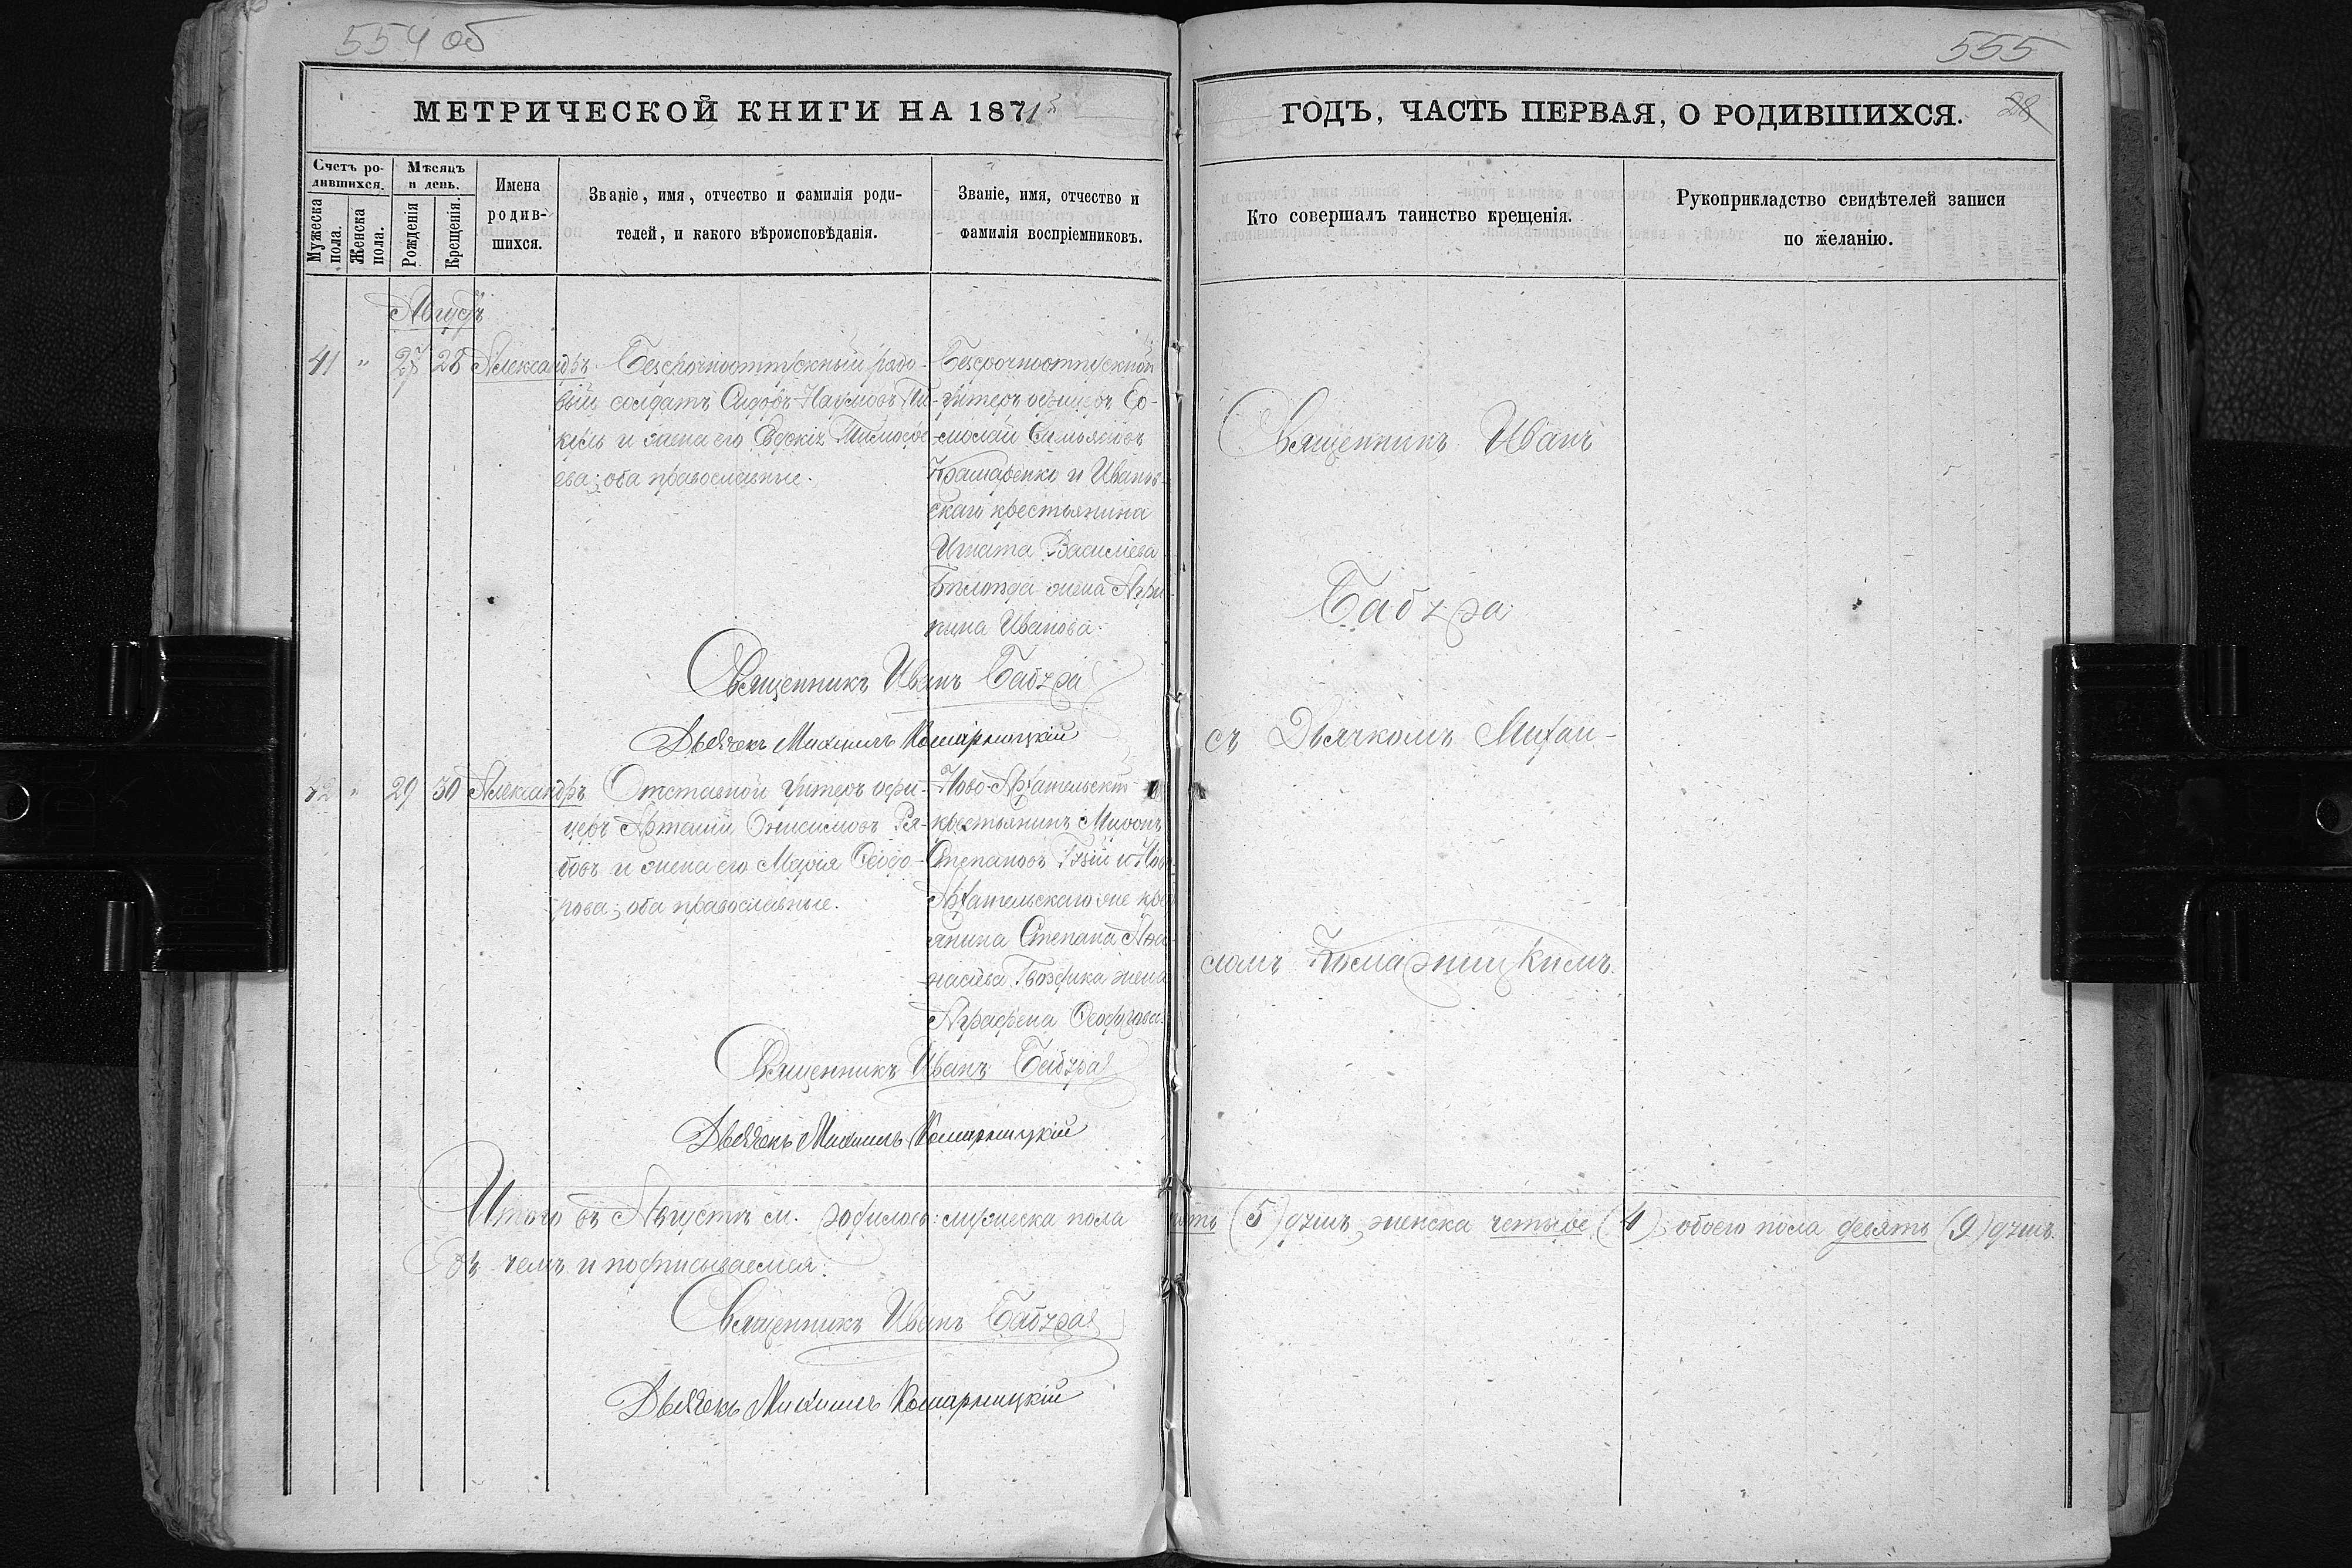 554 об
555
МЕТРИЧЕСКОЙ КНИГИ НА 1871й
ГОДЪ, ЧАСТЬ ПЕРВАЯ, О РОДИВШИХСЯ.
28
Счетъ ро-
дившихся.
Мужеска
пола.
Женска
пола.
Мѣсяцъ
и день.
Рожденія
Крещенія.
Имена
родив-
шихся.
Званіе, имя, отчество и фамилія роди-
телей, и какого вѣроисповѣданія.
Званіе, имя, отчество и
фамилія воспріемниковъ.
Кто совершалъ таинство крещенія.
Рукоприкладство свидѣтелей записи
по желанію.
Августъ
41 " 27 28 Александръ
Безсрочноотпускный рядо-
вый солдатъ Сидоръ Наумовъ
и жена его Евдокія Тимофе-
ева; оба православные.
Безсрочноотпускный
унтеръ офицеръ Ер-
молай Емельяновъ
Крамаренко и Иванов-
скаго крестьянина
Игната Василіева
жена Агри-
пина Иванова.
Священникъ Иванъ Бабура
Дьячекъ Михаилъ Комарницкій
42 " 29 30 Александръ
Отставной унтеръ офи-
церъ Онисимовъ Ря-
бовъ и жена его Марія Ѳеодо-
рова; оба православные.
Ново-Архангельскій
крестьянинъ Миронъ
Степановъ и Ново
Архангельскаго же крес
янина Степана Аѳа-
насіева Гвоздика жена
Аграфена Ѳеодорова.
Священникъ Иванъ Бабура
Дьячекъ Михаилъ Комарницкій
Священникъ Иванъ
Бабура
съ Дьячкомъ Михаи-
ломъ Комарницкимъ.
Итого въ Августѣ м. родилось: мужеска пола пять (5) душъ, женска четыре (4); обоего пола девять (9) душъ.
Въ чемъ и подписываемся:
Священникъ Иванъ Бабура
Дьячекъ Михаилъ Комарницкій